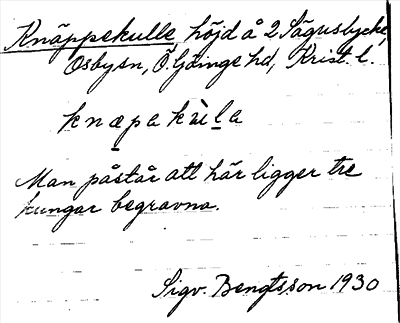 Knäppekulle höjd å 2 Sågusbycke,
Osbysn, Ö. Göinge hd, Krist. l.
knæpakùla
Man påstår att här ligger tre
kungar begravna.
Sigv. Bengtsson 1930